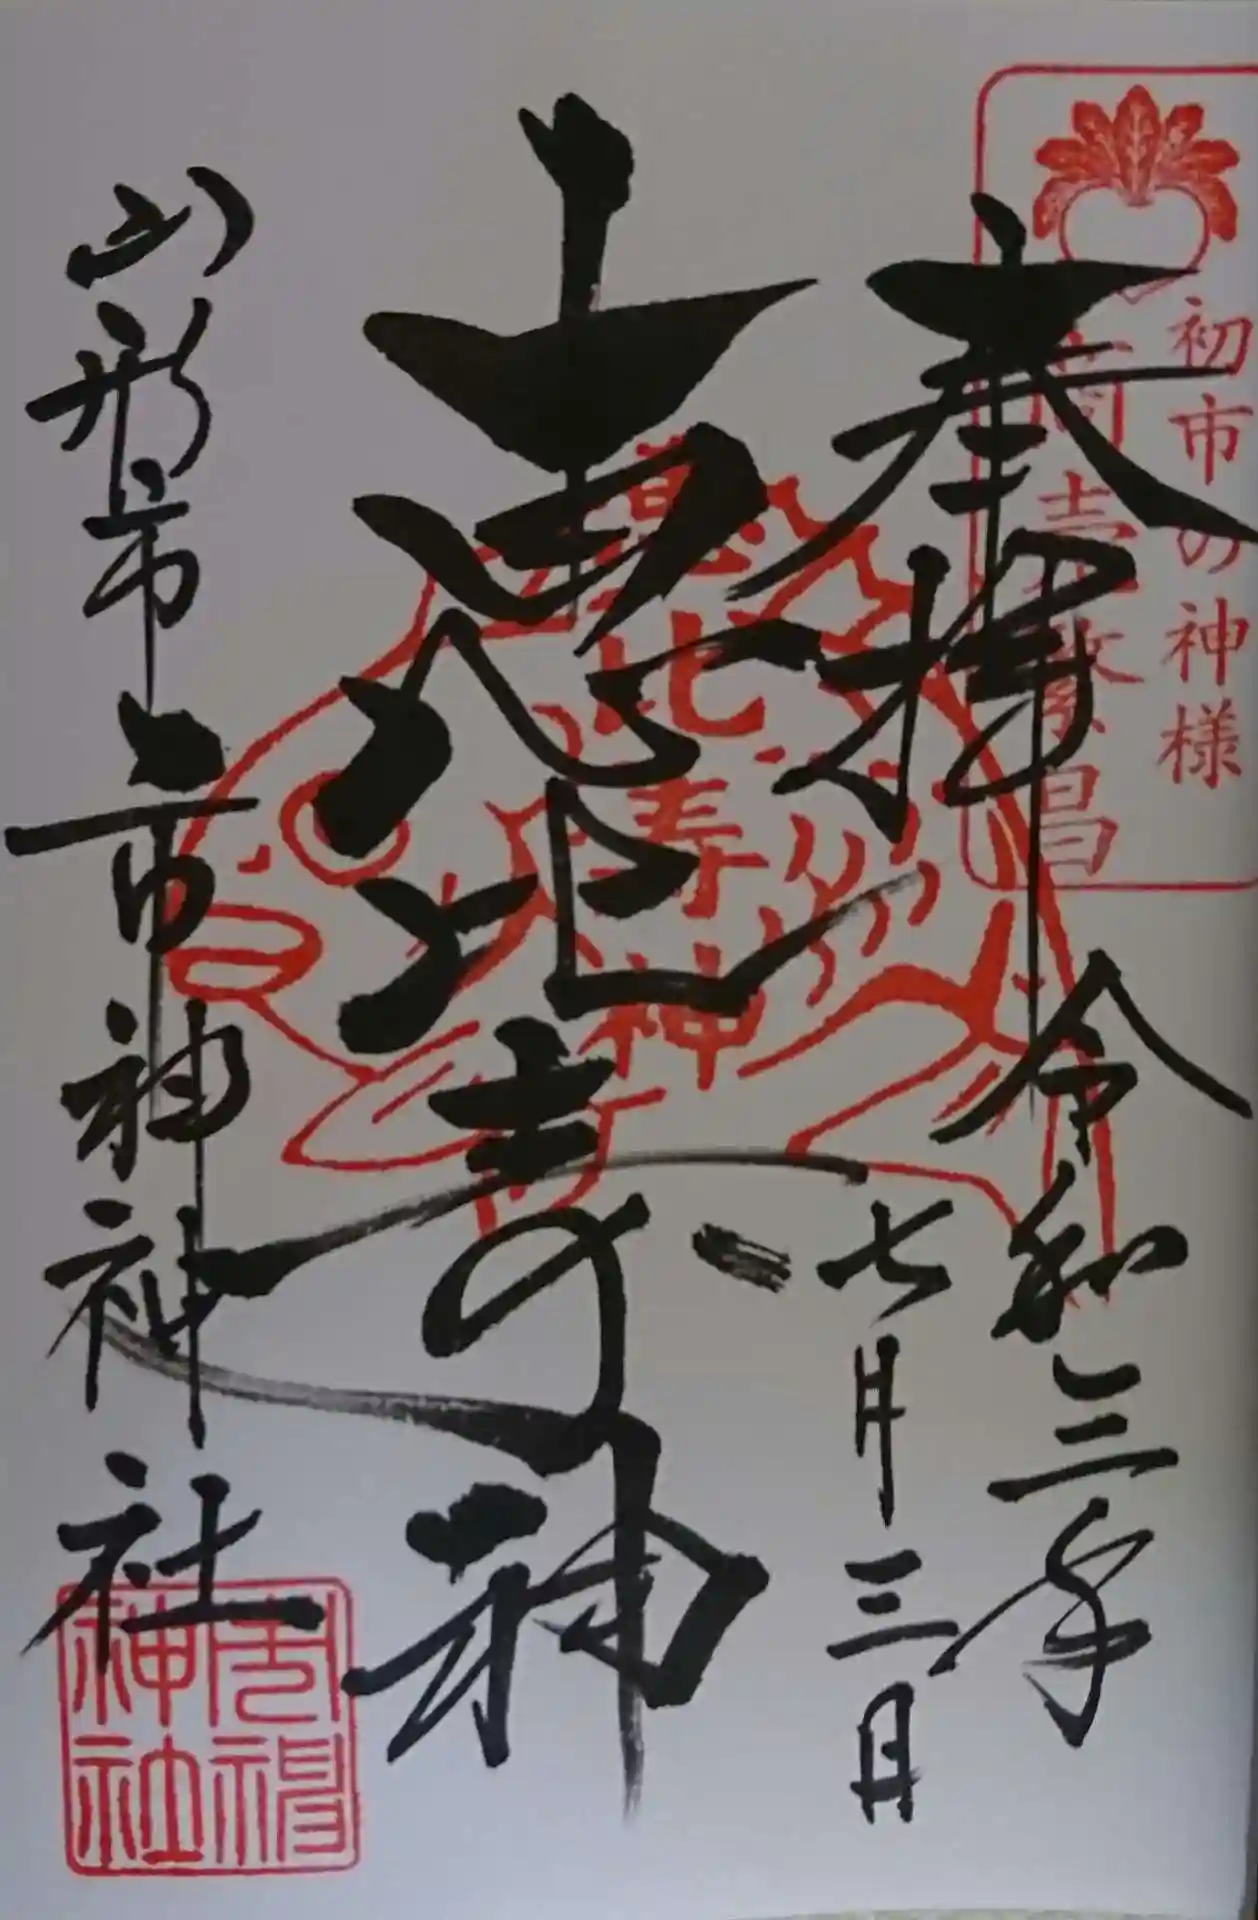 初市の神様
商売繁昌
奉拝
令和三年
七月三日
恵比寿神
恵比寿神
山形市市神神社
市神神社